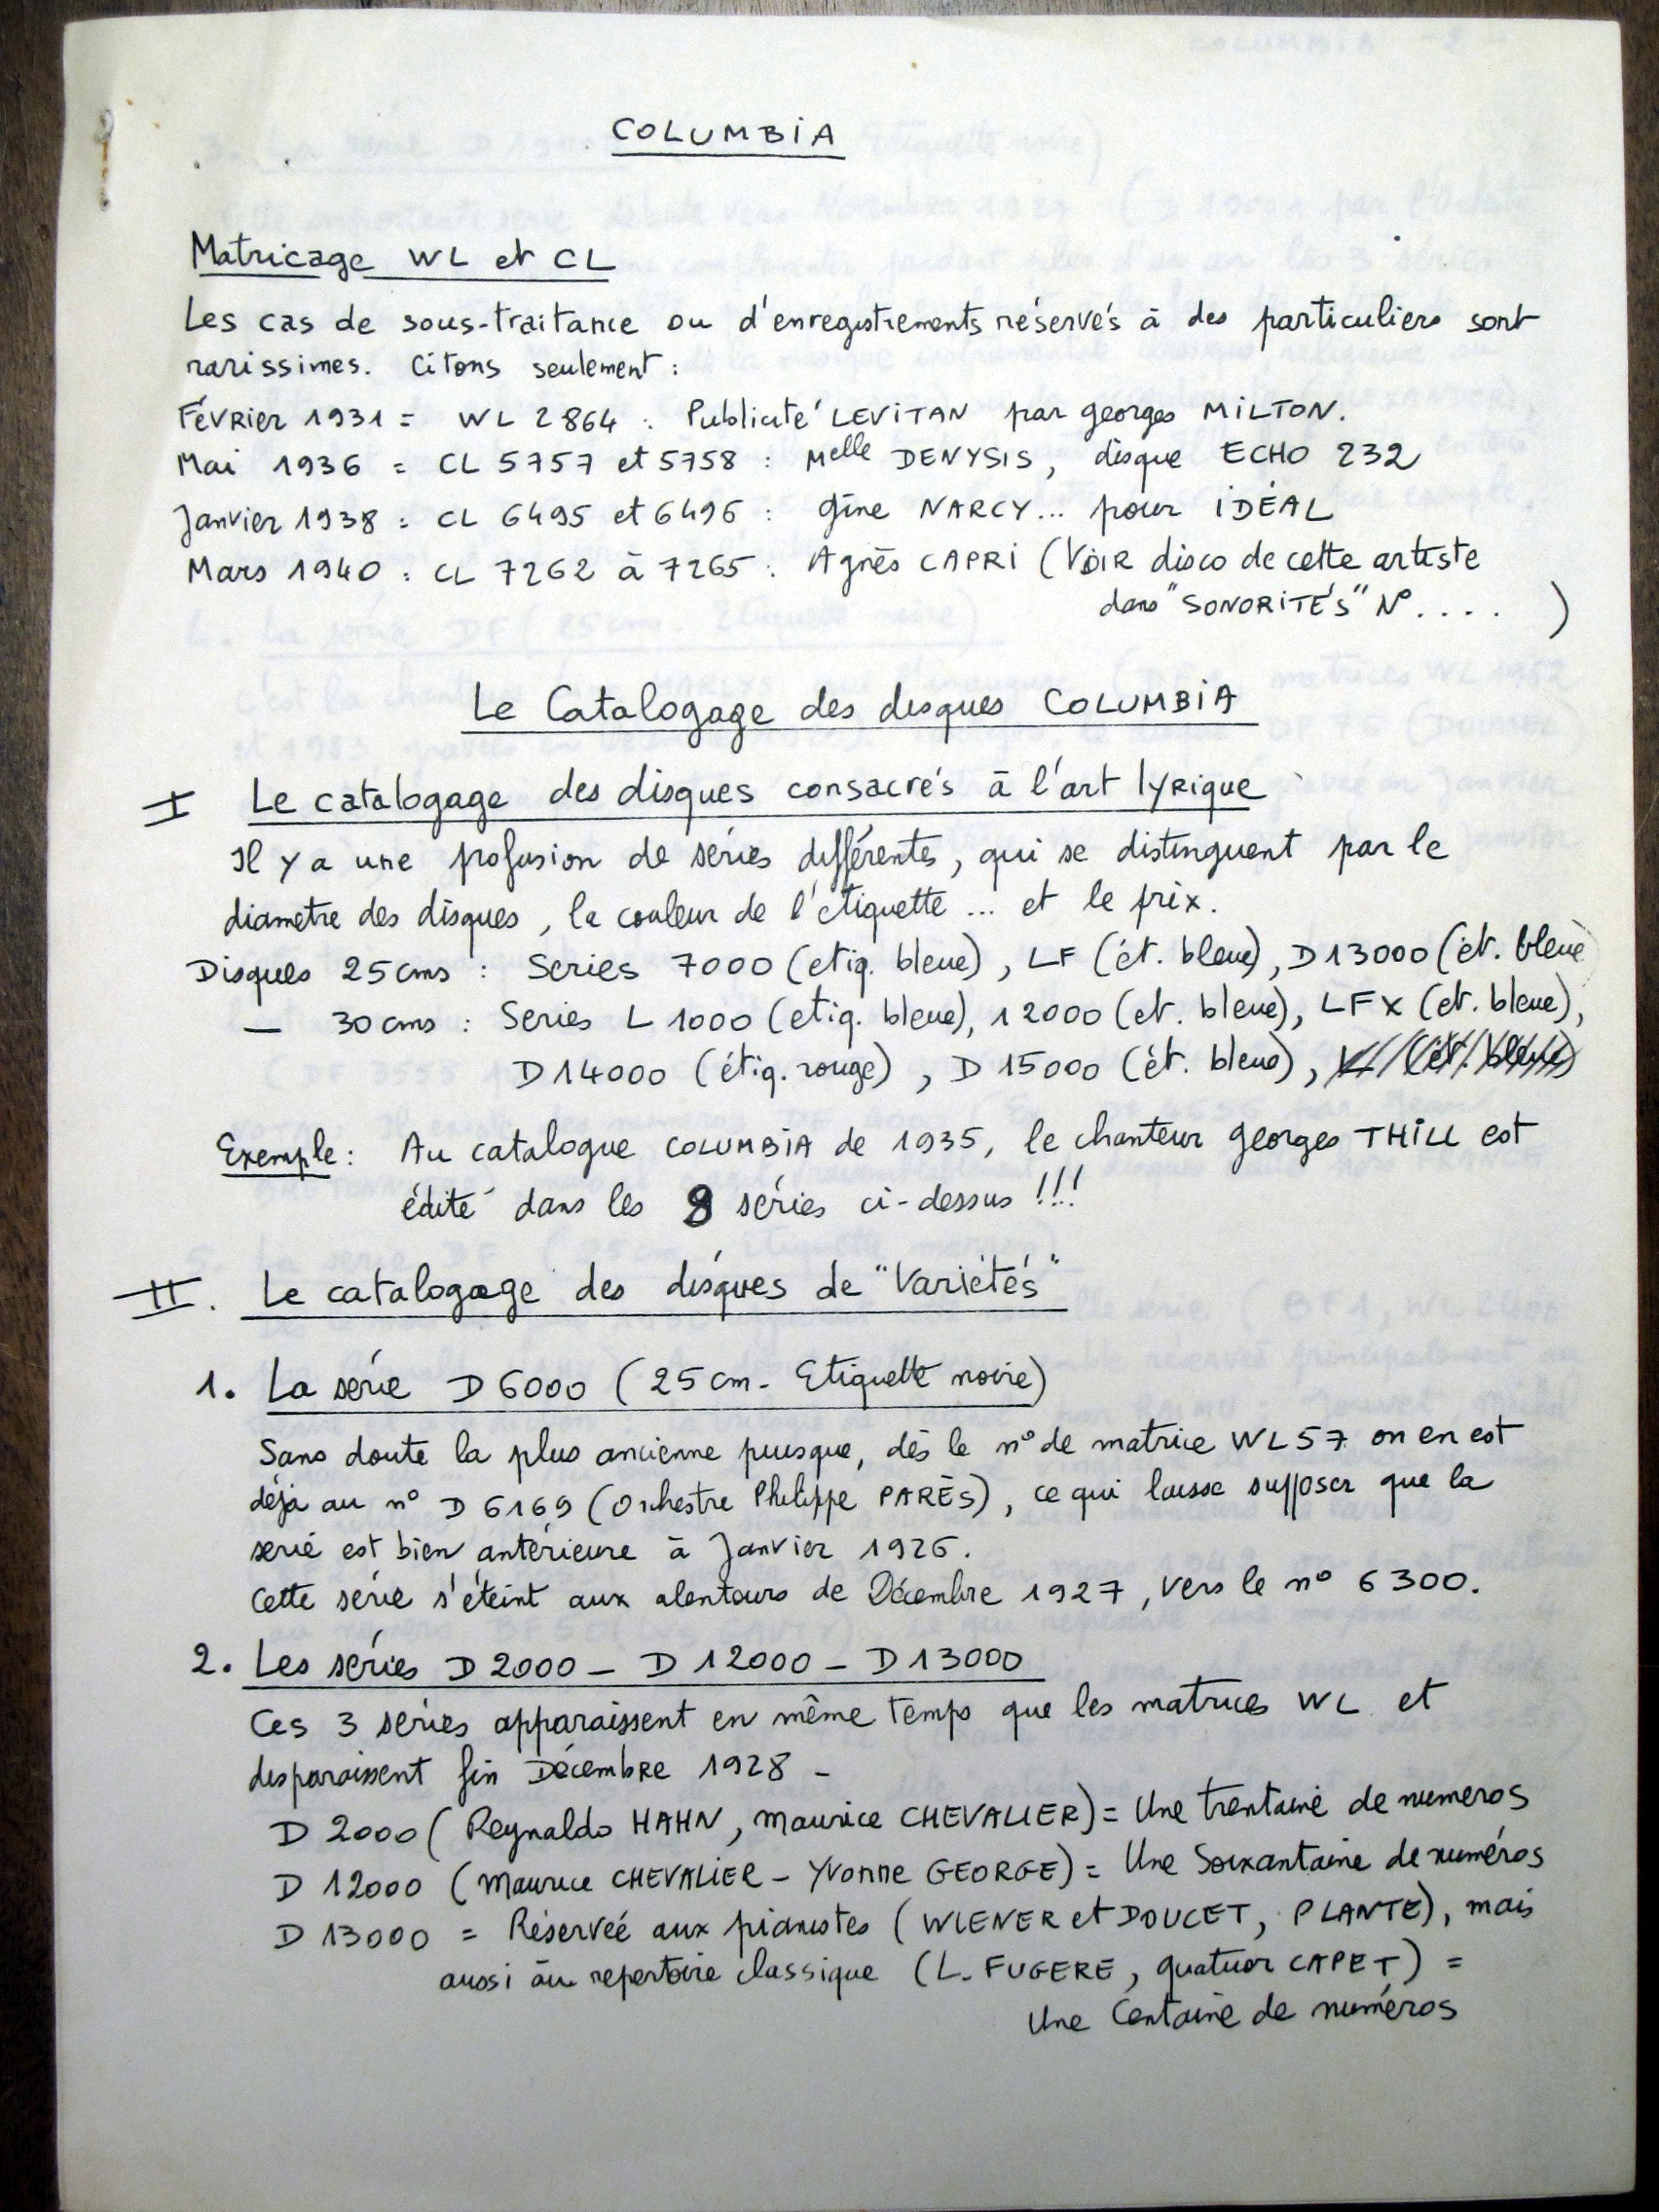 COLUMBIA
Matricage WL et CL
Les cas de sous-traitance ou d'enregistrements réservés à des particuliers sont
rarissimes. Citons seulement :
Février 1931 = WL 2864 : Publicité LEVITAN par Georges MILTON.
Mai 1936 = CL 5757 et 5758 : Melle DENYSIS, disque ECHO 232
Janvier 1938 : CL 6495 et 6496 : Gine NARCY... pour IDÉAL
Mars 1940 : CL 7262 à 7265 : Agnès CAPRI (Voir disco de cette artiste
dans "SONORITÉS" N° .... )
Le Catalogage des disques COLUMBIA
I Le catalogage des disques consacrés à l'art lyrique
Il y a une profusion de séries différentes, qui se distinguent par le
diametre des disques, la couleur de l'étiquette ... et le prix.
Disques 25 cms : Series 7000 (etiq. bleue), LF (ét. bleue), D 13000 (ét. bleue)
— 30 cms : Series L 1000 (etiq. bleue), 12000 (et. bleue), LFX (et. bleue),
D 14000 (étiq. rouge), D 15000 (ét. bleue),
Exemple : Au catalogue COLUMBIA de 1935, le chanteur Georges THILL est
édité dans les 8 séries ci-dessus !!!
II. Le catalogage des disques de "Variétés"
1. La série D 6000 (25 cm - Etiquette noire)
Sans doute la plus ancienne puisque, dès le n° de matrice WL 57 on en est
déjà au n° D 6169 (Orchestre Philippe PARÈS), ce qui laisse supposer que la
serié est bien antérieure à Janvier 1926.
Cette série s'éteint aux alentours de Décembre 1927, vers le n° 6300.
2. Les séries D 2000 - D 12000 - D 13000
Ces 3 séries apparaissent en même temps que les matrices WL et
disparaissent fin Décembre 1928 -
D 2000 (Reynaldo HAHN, Maurice CHEVALIER) = Une trentaine de numeros
D 12000 (Maurice CHEVALIER - Yvonne GEORGE) = Une Soixantaine de numéros
D 13000 = Réservée aux pianistes (WIENER et DOUCET, PLANTE), mais
aussi au repertoire classique (L. FUGERE, quatuor CAPET) =
Une Centaine de numéros